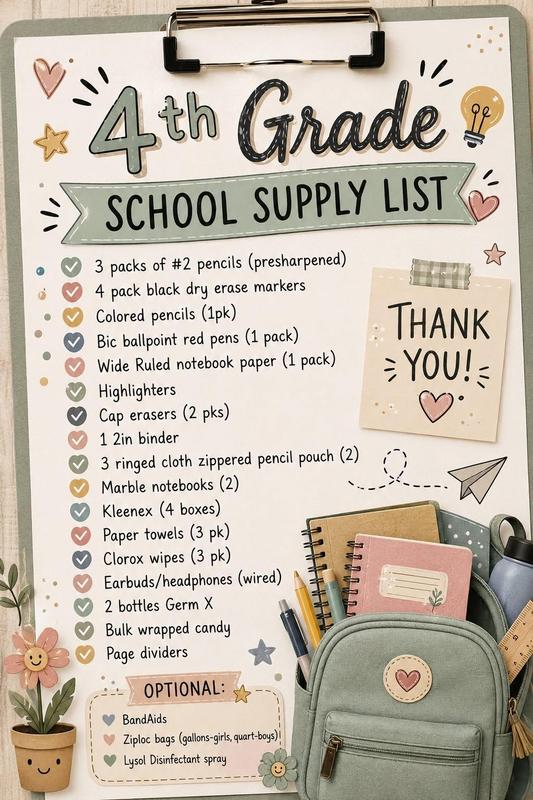 4th Grade
SCHOOL SUPPLY LIST
3 packs of #2 pencils (presharpened)
4 pack black dry erase markers
Colored pencils (1pk)
Bic ballpoint red pens (1 pack)
Wide Ruled notebook paper (1 pack)
Highlighters
Cap erasers (2 pks)
1 2in binder
3 ringed cloth zippered pencil pouch (2)
Marble notebooks (2)
Kleenex (4 boxes)
Paper towels (3 pk)
Clorox wipes (3 pk)
Earbuds/headphones (wired)
2 bottles Germ X
Bulk wrapped candy
Page dividers
THANK
YOU!
OPTIONAL:
BandAids
Ziploc bags (gallons-girls, quart-boys)
Lysol Disinfectant spray